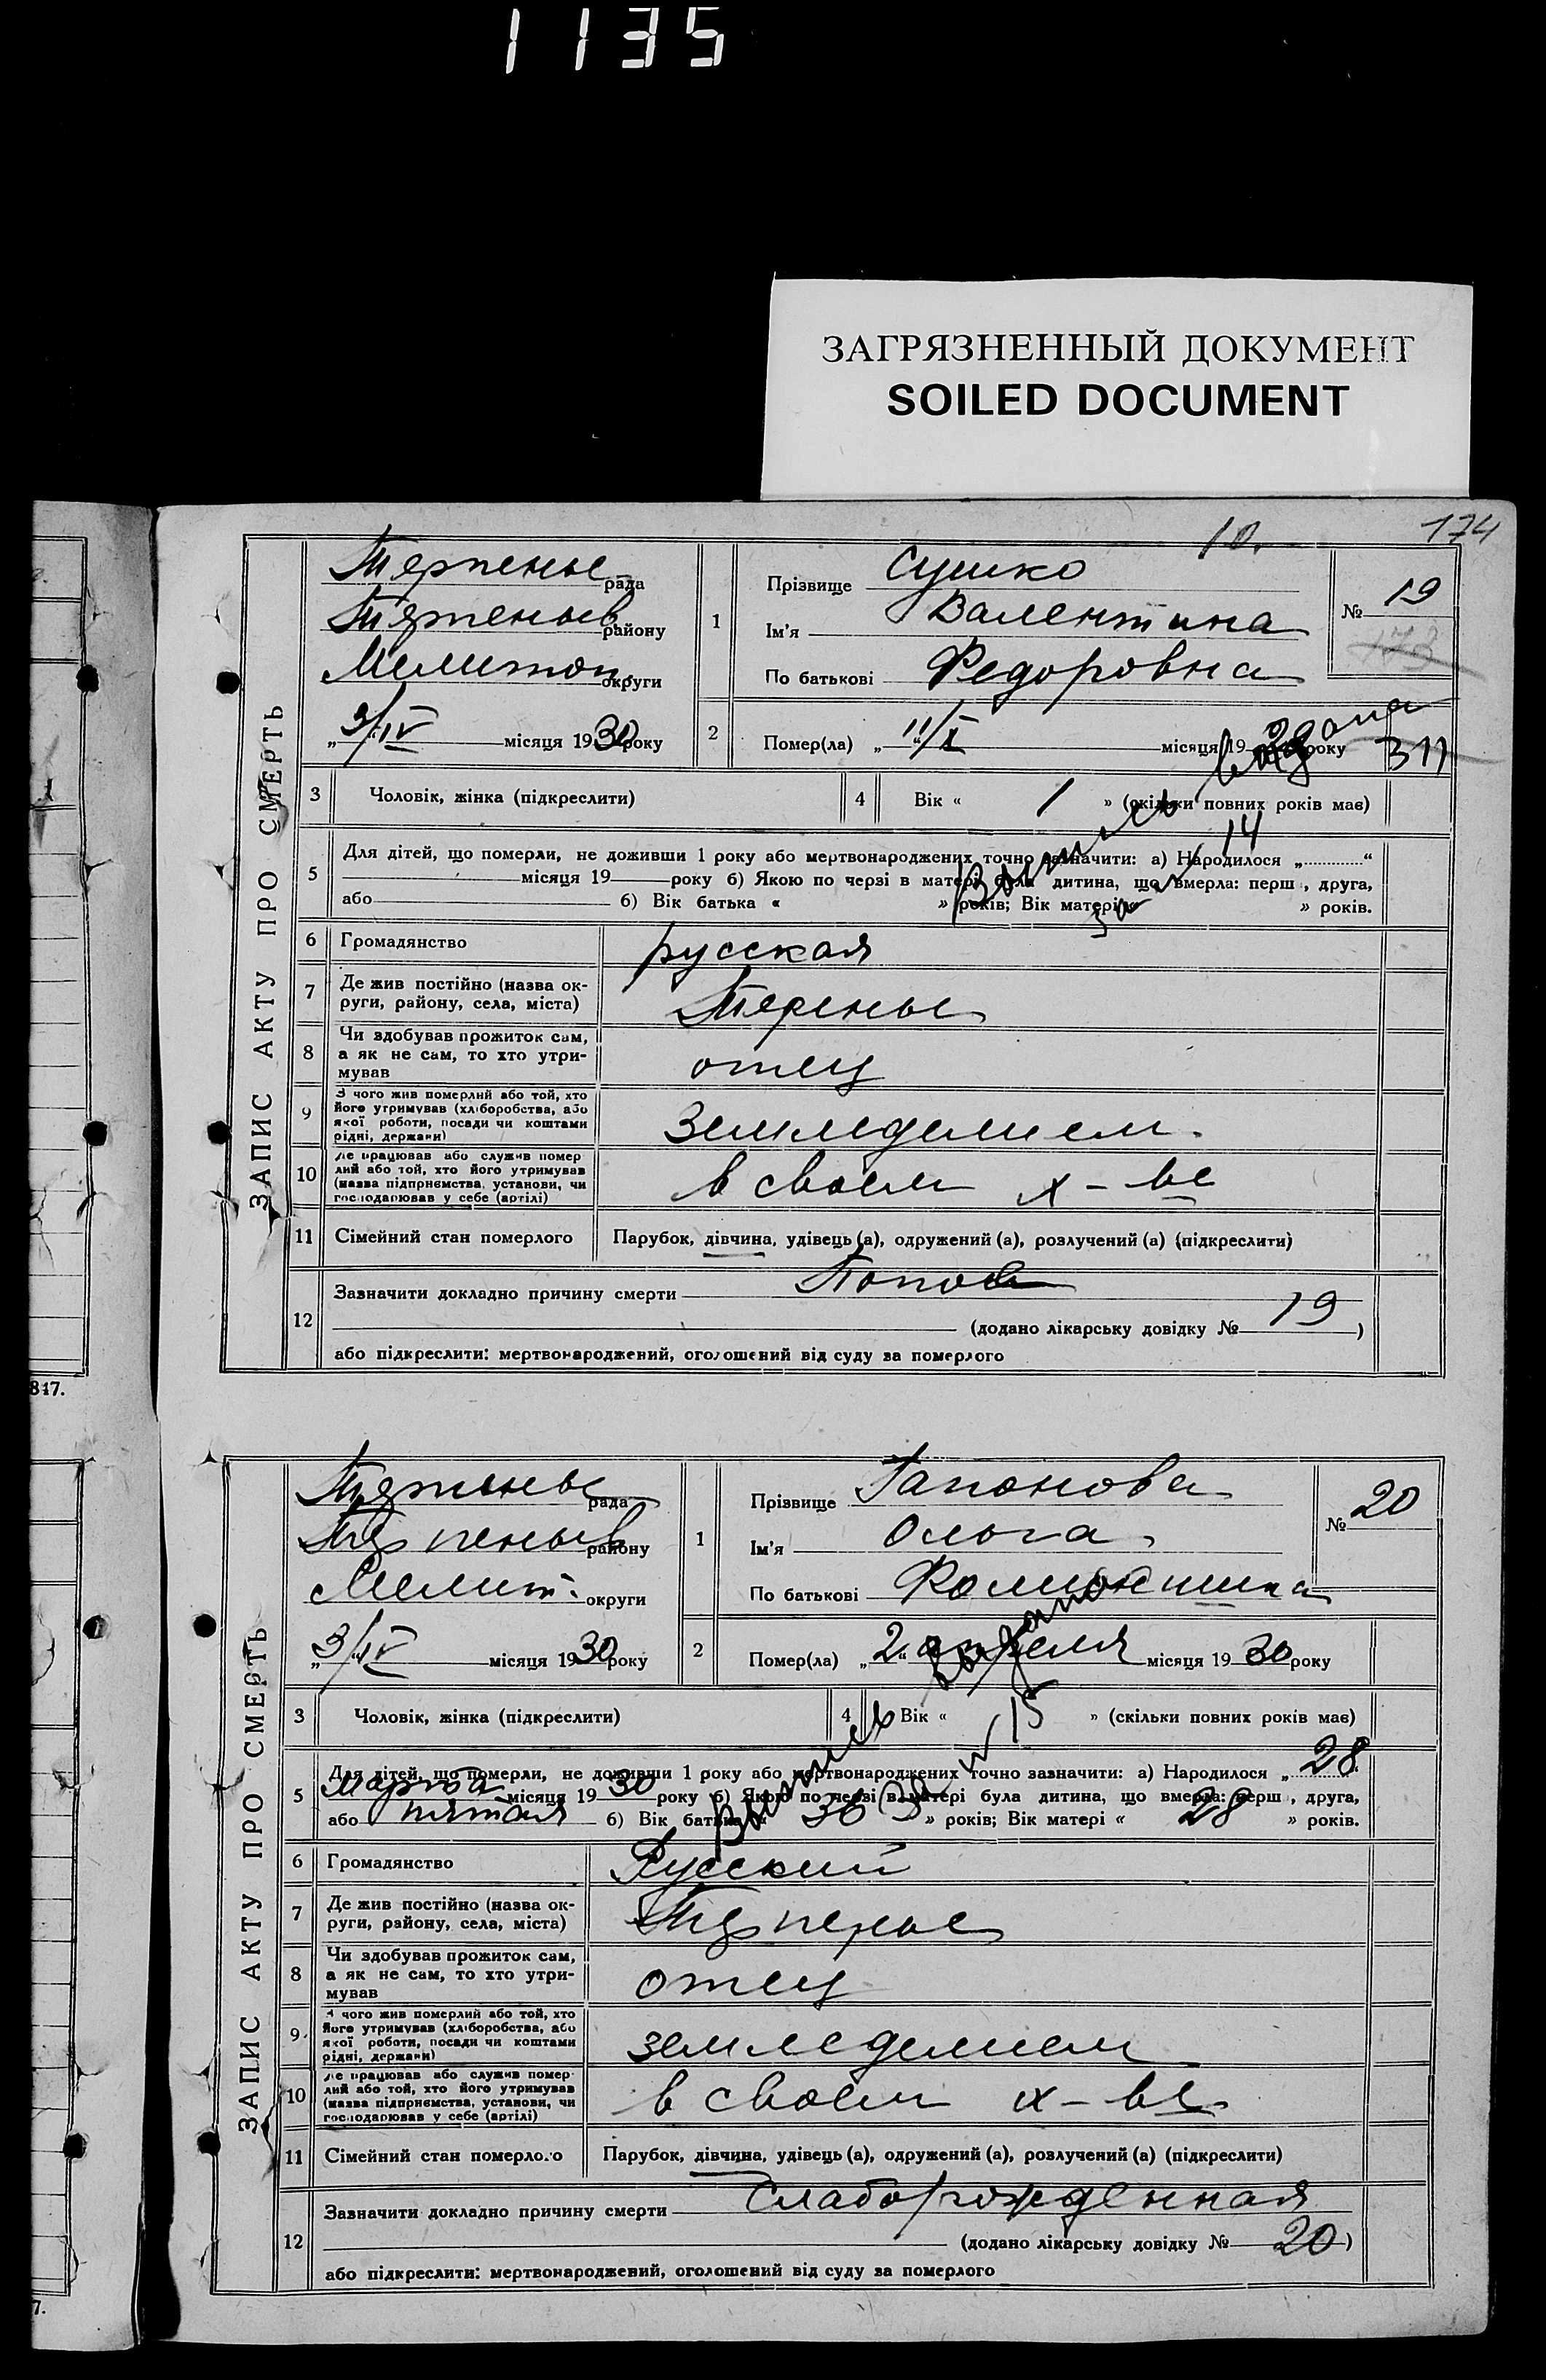 1135
ЗАГРЯЗНЕННЫЙ ДОКУМЕНТ
SOILED DOCUMENT
10. 174
ЗАПИС АКТУ ПРО СМЕРТЬ
Терпенье рада
района
Мелитоп. округи
„3/IV“ місяця 1930 року
1 Прізвище Сушко
Ім'я Валентина
По батькові Федоровна
№ 19
173
2 Помер(ла) „11/I“ місяця 19 року
311
3 Чоловік, жінка (підкреслити)
4 Вік « 1 » (скільки повних років має)
Выпись выдана
за № 14
5 Для дітей, що померли, не доживши 1 року або мертвонароджених точно зазначити: а) Народилося „ “
місяця 19 року б) Якою по черзі в матері була дитина, що вмерла: перш , друга,
або б) Вік батька « » років; Вік матері « » років.
6 Громадянство русская
7 Де жив постійно (назва округи, району, села, міста)
8 Чи здобував прожиток сам, а як не сам, то хто утримував отец
9 З чого жив померлий або той, хто його утримував (хліборобства, або якої роботи, посади чи коштами рідні, держави) Земледелием.
10 Де працював або служив померлий або той, хто його утримував (назва підприємства, установи, чи господарював у себе (артілі) в своем х-ве
11 Сімейний стан померлого Парубок, дівчина, удівець (а), одружений (а), розлучений (а) (підкреслити)
12 Зазначити докладно причину смерти
(додано лікарську довідку № 19)
або підкреслити: мертвонароджений, оголошений від суду за померлого
847.
ЗАПИС АКТУ ПРО СМЕРТЬ
Терпенье рада
району
Мелит. округи
„3/IV“ місяця 1930 року
1 Прізвище Гапонова
Ім'я Ольга
По батькові
№ 20
2 Помер(ла) „2“ апреля місяця 1930 року
3 Чоловік, жінка (підкреслити)
4 Вік « » (скільки повних років має)
Выпись выдана
за № 15
5 Для дітей, що померли, не доживши 1 року або мертвонароджених точно зазначити: а) Народилося „28“
марта місяця 1930 року б) Якою по черзі в матері була дитина, що вмерла: перш , друга,
або пятая б) Вік батька « 36 » років; Вік матері « 28 » років.
6 Громадянство Русский
7 Де жив постійно (назва округи, району, села, міста) Терпенье
8 Чи здобував прожиток сам, а як не сам, то хто утримував отец
9 З чого жив померлий або той, хто його утримував (хліборобства, або якої роботи, посади чи коштами рідні, держави) земледелием
10 Де працював або служив померлий або той, хто його утримував (назва підприємства, установи, чи господарював у себе (артілі) в своем х-ве.
11 Сімейний стан померлого Парубок, дівчина, удівець (а), одружений (а), розлучений (а) (підкреслити)
12 Зазначити докладно причину смерти Слаборожденная
(додано лікарську довідку № 20)
або підкреслити: мертвонароджений, оголошений від суду за померлого
7.